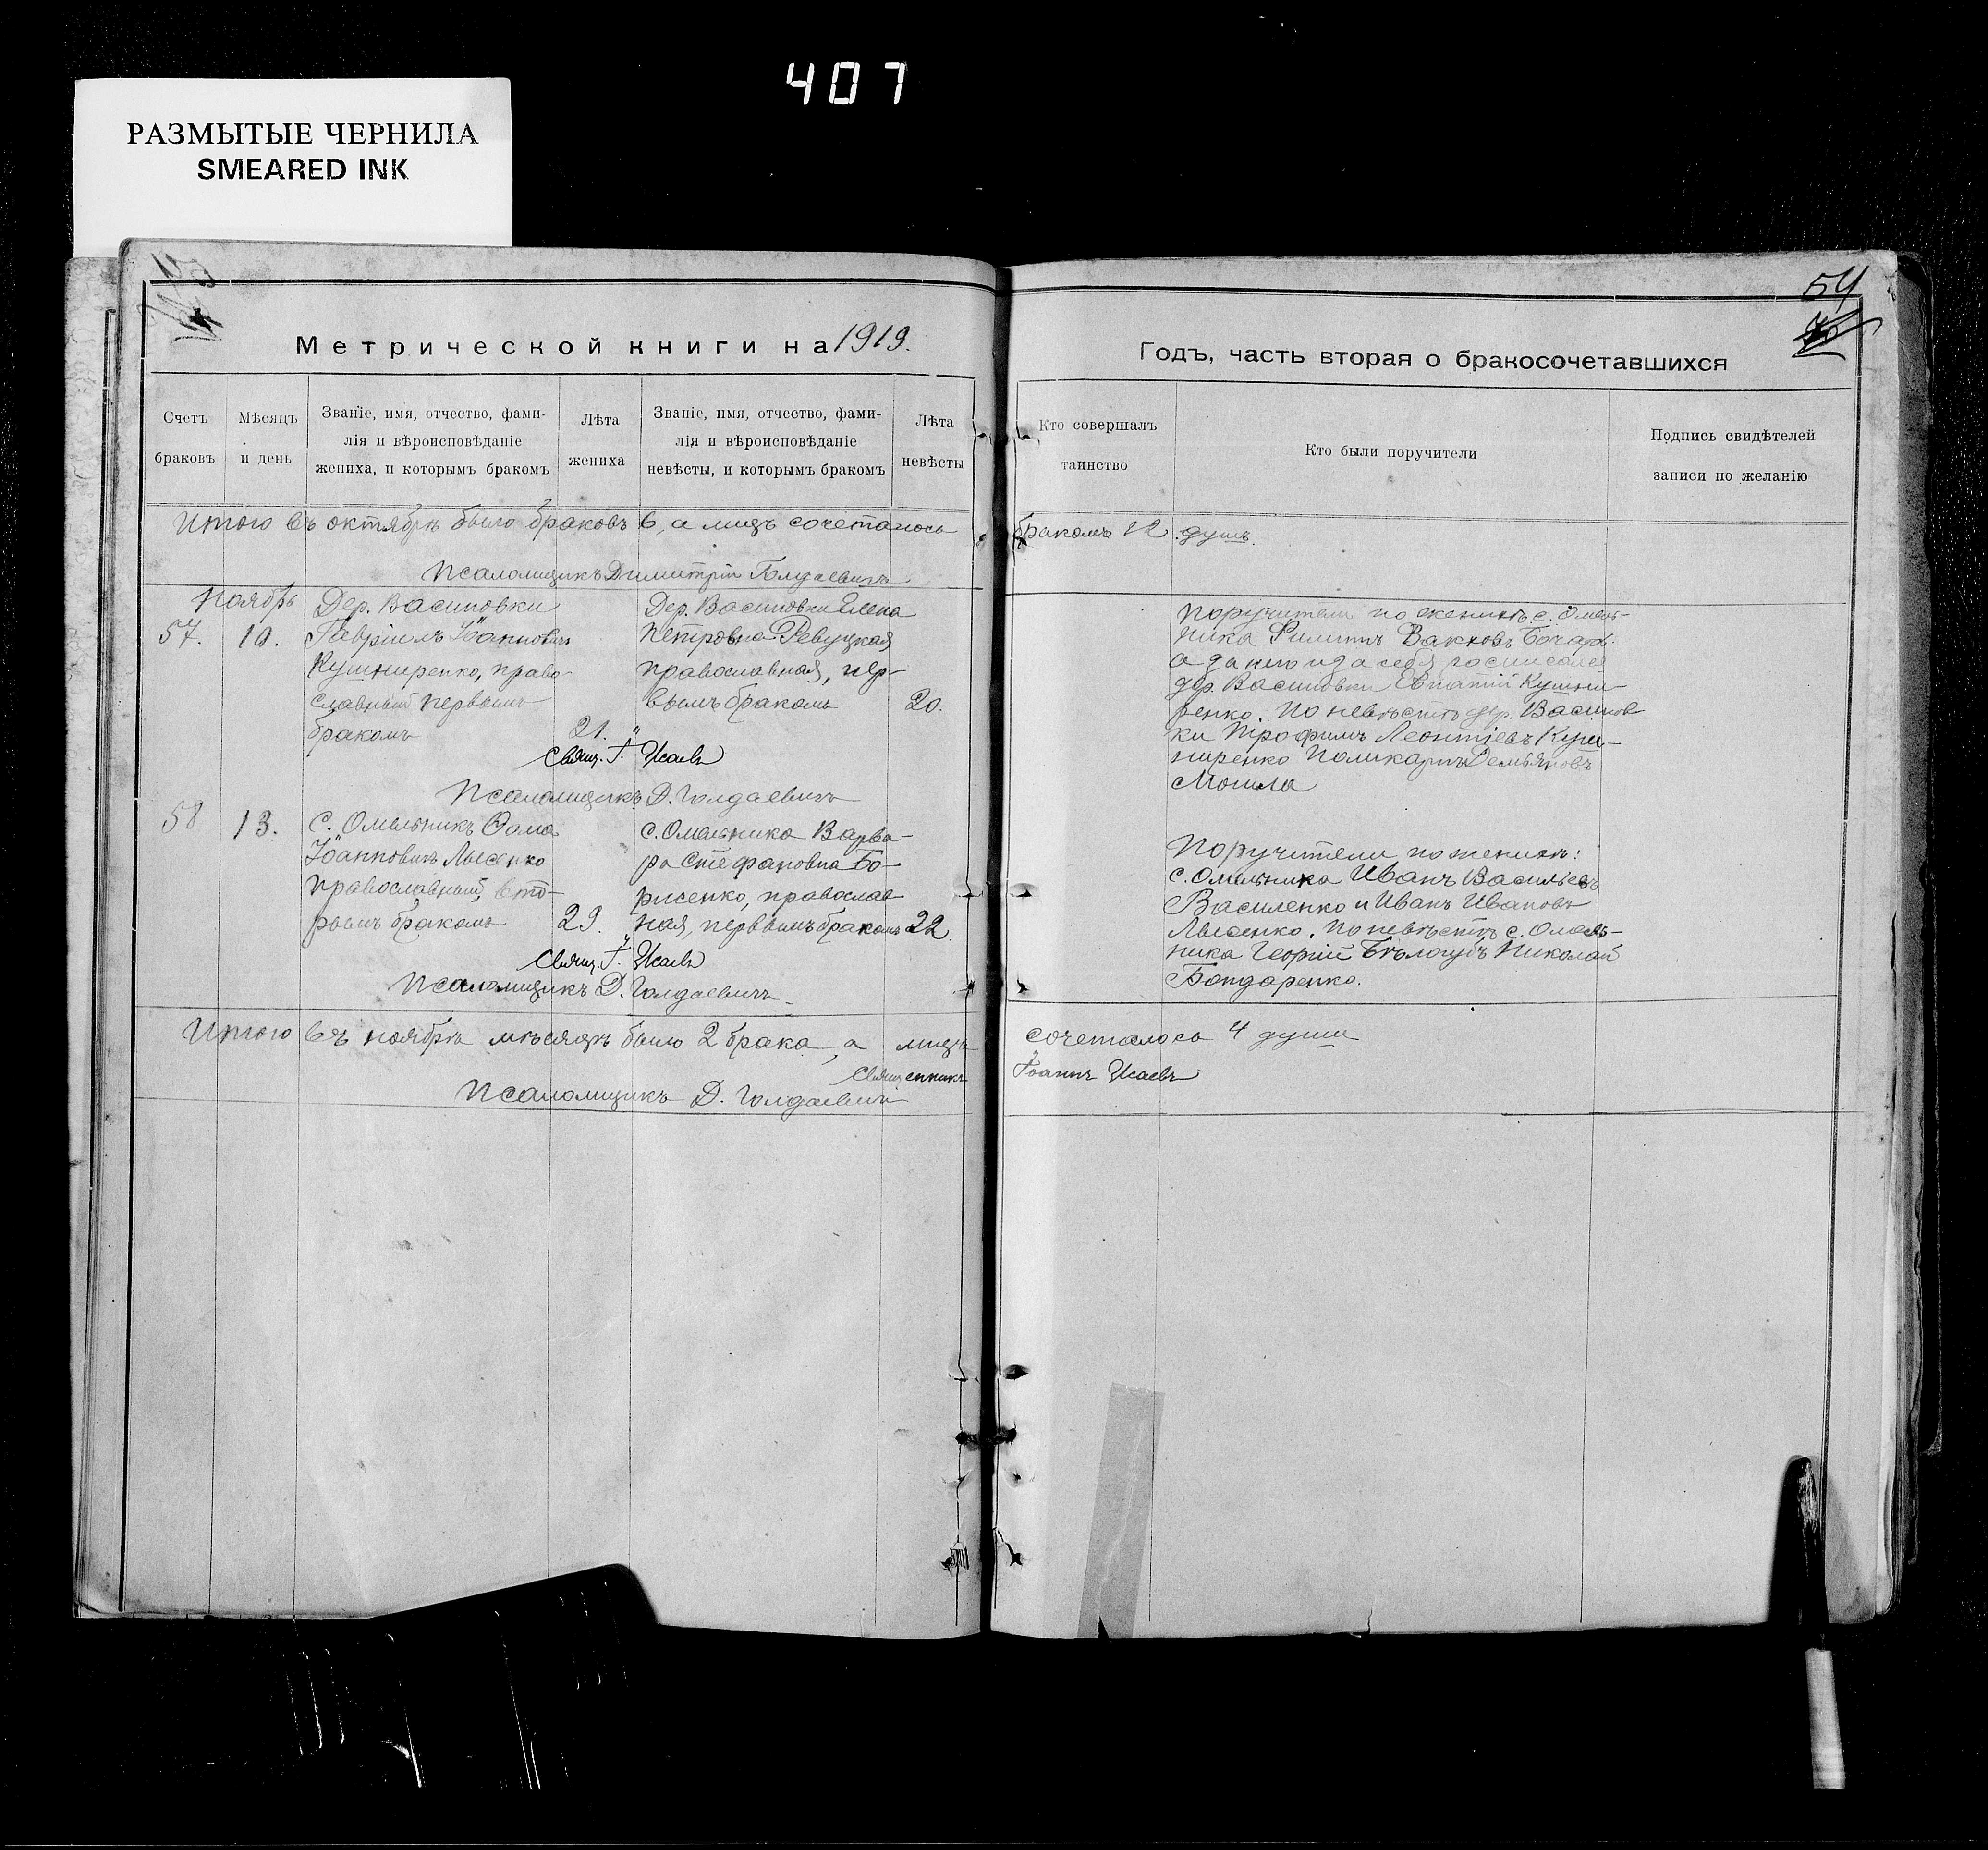 407
РАЗМЫТЫЕ ЧЕРНИЛА
SMEARED INK
54
Метрической книги на 1919.
Годъ, часть вторая о бракосочетавшихся
Счетъ браковъ
Мѣсяцъ и день
Званіе, имя, отчество, фами-
лія и вѣроисповѣданіе
жениха, и которымъ бракомъ
Лѣта жениха
Званіе, имя, отчество, фами-
лія и вѣроисповѣданіе
невѣсты, и которымъ бракомъ
Лѣта невѣсты
Кто совершалъ таинство
Кто были поручители
Подпись свидѣтелей
записи по желанію
Итого въ октябрѣ было браковъ 6, а лицъ сочеталось бракомъ 12 душъ.
Псаломщикъ Димитрій Голдаевичъ
Ноябрь
57. 10.
Дер. Васиновки
Гавріилъ Іоанновичъ
Кушниренко, право-
славный первымъ
бракомъ
21.
Дер. Васиновки Елена
Петровна Ревуцкая
православная, пер-
вымъ бракомъ
20.
Свящ. І. Исаевъ
Псаломщикъ Д. Голдаевичъ
Поручители по женихѣ с. Омель-
ника Филиппъ Бочаръ
а за него и за себя росписался
дер. Васиновки Евстатій Кушни-
ренко. По невѣстѣ дер. Васинов
ки Трофимъ Леонтіевъ Куш-
ниренко Поликарпъ Демьяновъ
Могила
58 13.
с. Омельникъ Ѳома
Іоанновичъ Лысенко
православный, вто-
рымъ бракомъ
29.
с. Омельника Варва-
ра Стефановна Бо-
рисенко, православ
ная, первымъ бракомъ
22.
Свящ. І. Исаевъ
Псаломщикъ Д. Голдаевичъ
Поручители по женихѣ:
с. Омельника Иванъ Васильевъ
Василенко и Иванъ Ивановъ
Лысенко. По невѣстѣ с. Омель-
ника Георгій Бѣлогубъ Николай
Бондаренко.
Итого въ ноябрѣ мѣсяцѣ было 2 брака, а лицъ сочеталось 4 души
Священникъ Іоаннъ Исаевъ
Псаломщикъ Д. Голдаевичъ